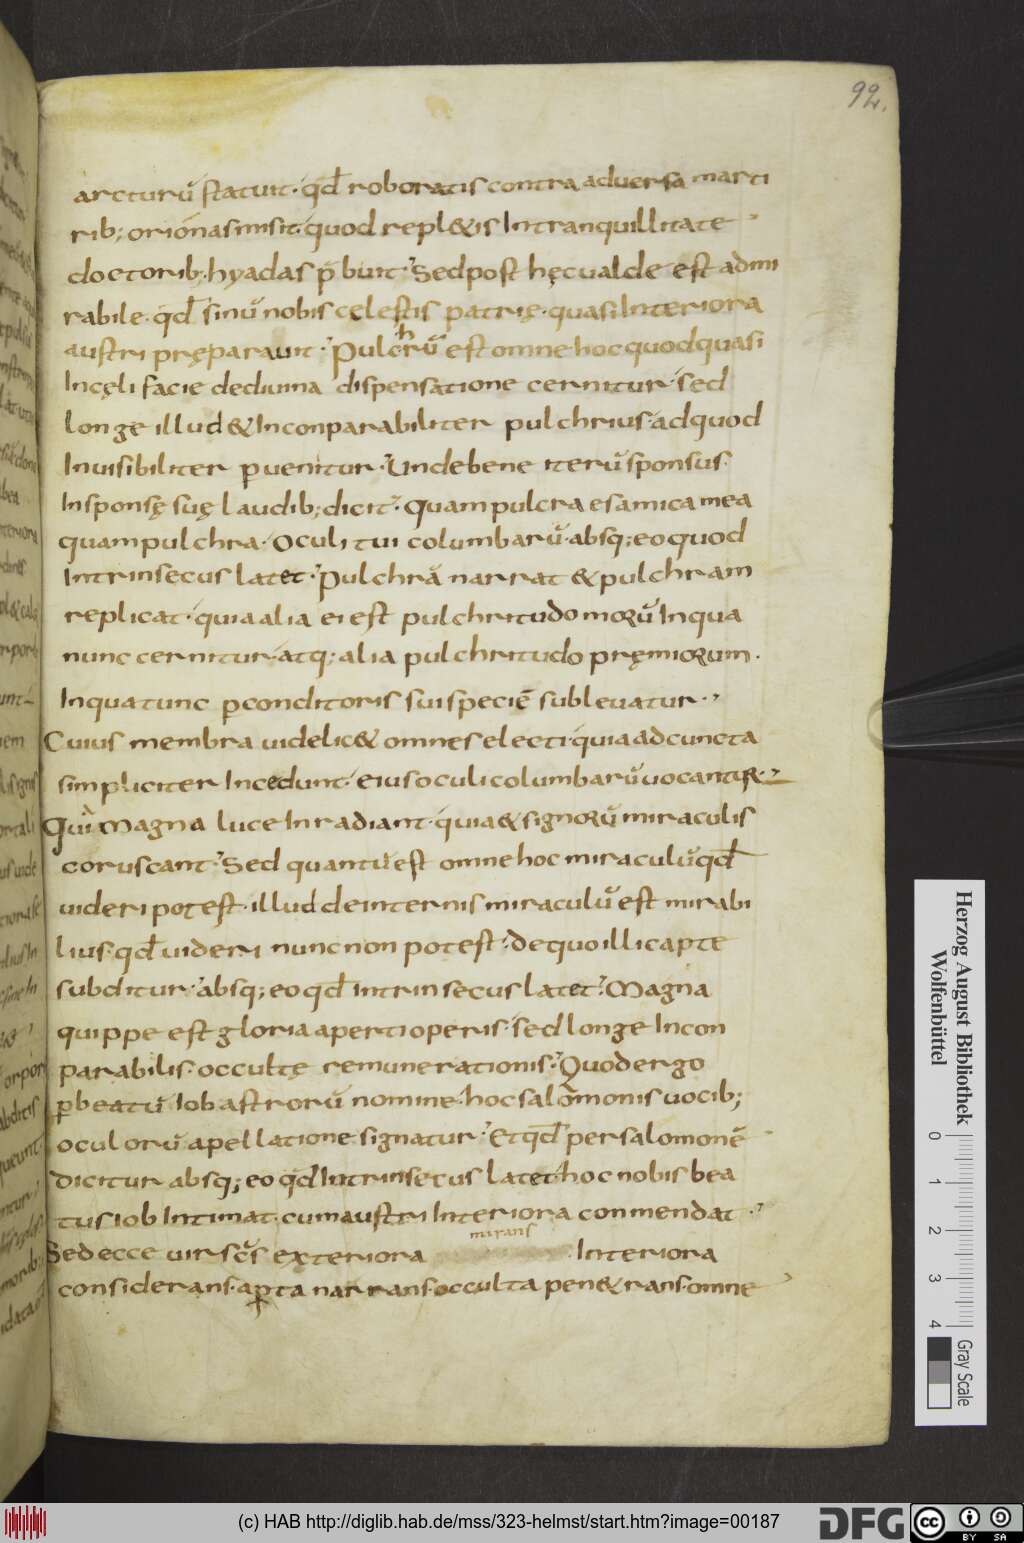 92.
arcturũ statuit· qđ roboratis contra aduersa marti
rib; orionas misit· quod repl&is In tranquillitate
doctorib; hyadas p̄buit· Sed post hęc ualde est admi
rabile· qđ sinũ nobis cęlestis patrię· quasi Interiora
austri pręparauit· Pulcrũ est omne hoc quod quasi
h
In cęli facie dediuina dispensatione cernitur· sed
longe illud & Inconparabiliter pulchrius· ad quod
Inuisibiliter ꝑuenitur· Unde bene iterũ sponsus·
In sponsę suę laudib; dicit· Quam pulcra es amica mea
quam pulchra· Oculi tui columbarũ· absq; eo quod
Intrinsecus latet· Pulchrā narrat & pulchram
replicat· quia alia ei est pulchritudo morũ In qua
nunc cernitur· atq; alia pulchritudo pręmiorum·
In qua tunc ꝑ conditoris sui speciē subleuatur·
Cuius membra uidelic& omnes electi· quia ad cuncta
simpliciter Incedunt· eius oculi columbarũ uocantur·
Qui magna luce Inradiant· quia & signorũ miraculis
coruscant· Sed quantũ est omne hoc miraculũ qđ
uideri potest· illud de internis miraculũ est mirabi
lius· qđ uideri nunc non potest· de quo illic apte
subditur· absq; eo qđ intrinsecus latet· Magna
quippe est gloria aperti operis· sed longe Incon
parabilis· occultę remunerationis· Quod ergo
ꝑ beatũ Iob astrorũ nomine· hoc salomonis uocib;
oculorũ apellatione signatur· Et qđ per salomonē
dicitur absq; eo qđ Intrinsecus latet· hoc nobis bea
tus Iob Intimat· cum austri Interiora conmendat·
Sed ecce uir sc̄s exteriora mirans Interiora
considerans· aꝑta narrans· occulta pen&rans· omne
Herzog August Bibliothek
Wolfenbüttel
0 1 2 3 4
Gray Scale
(c) HAB http://diglib.hab.de/mss/323-helmst/start.htm?image=00187
DFG
cc BY SA